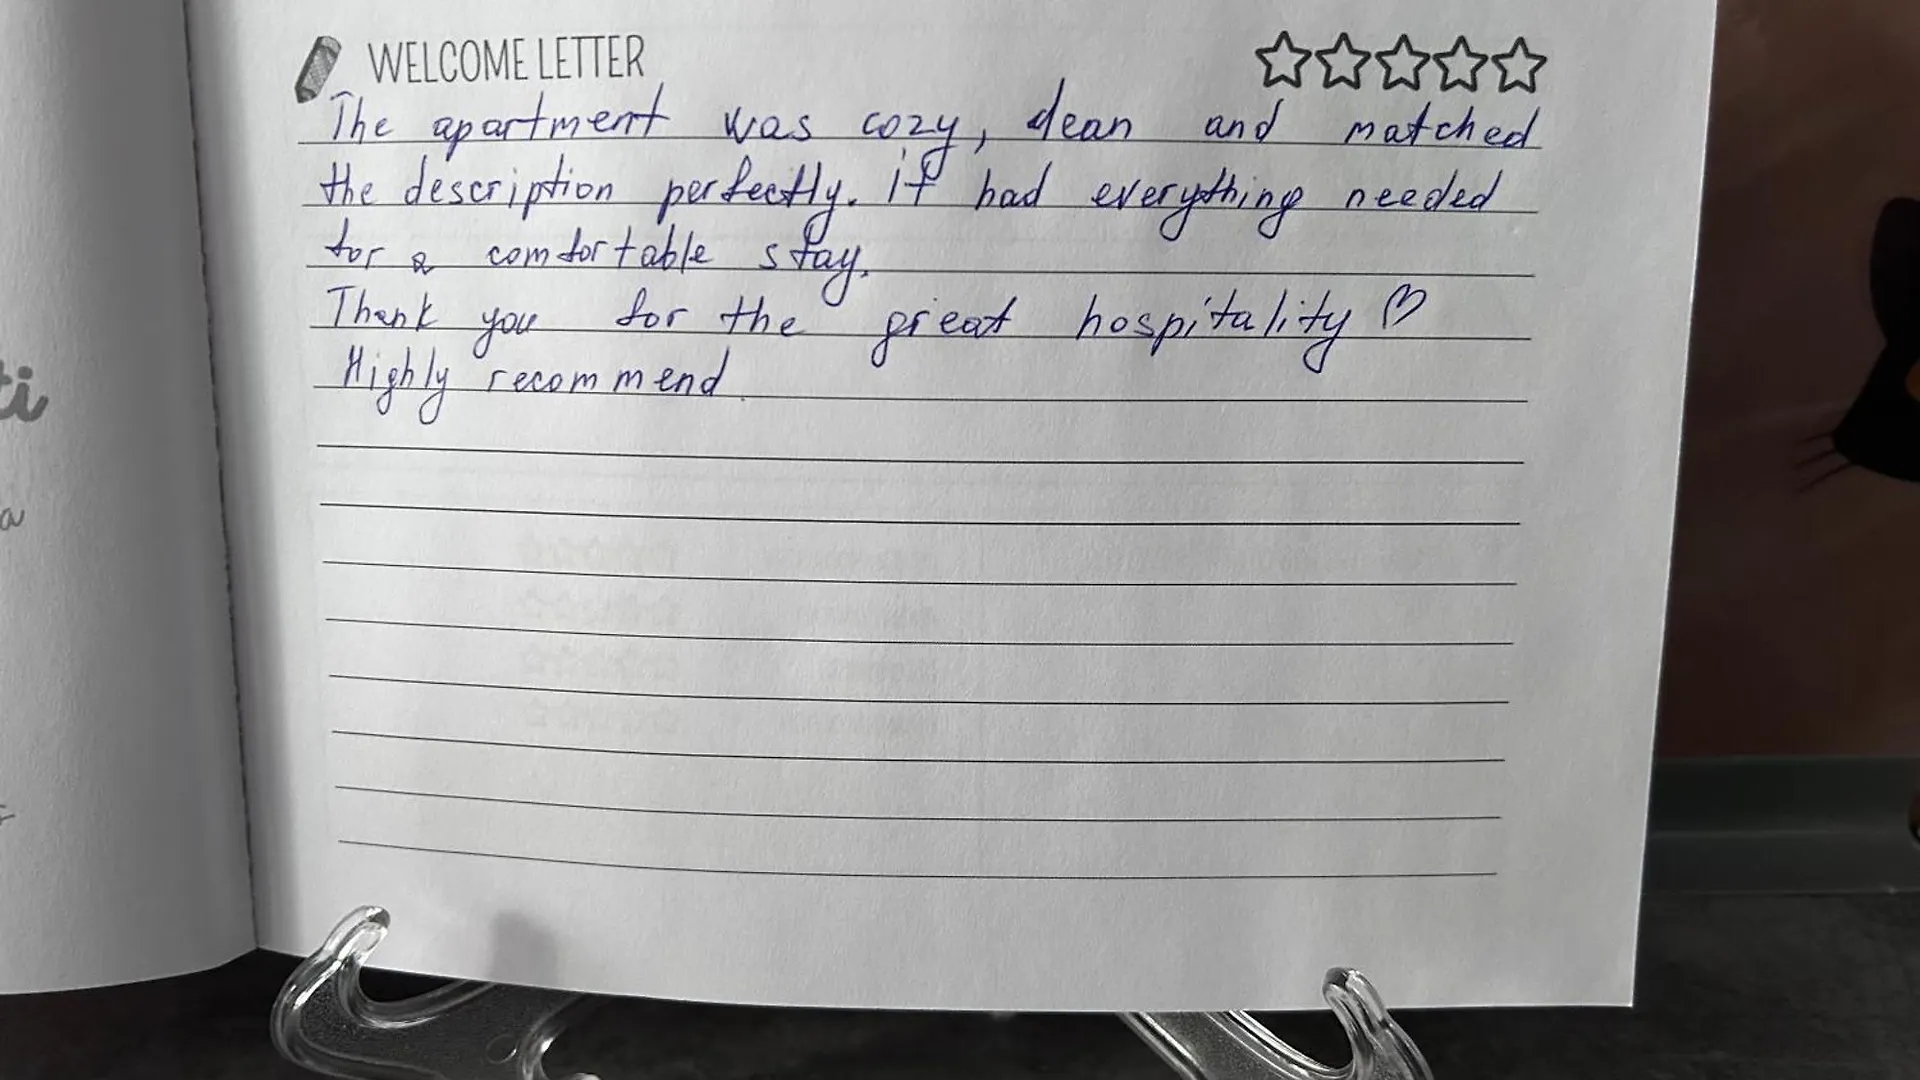 WELCOME LETTER
The apartment was cozy, clean and matched
the description perfectly. it had everything needed
for a comfortable stay.
Thank you for the great hospitality ♡
Highly recommend.
ti
a